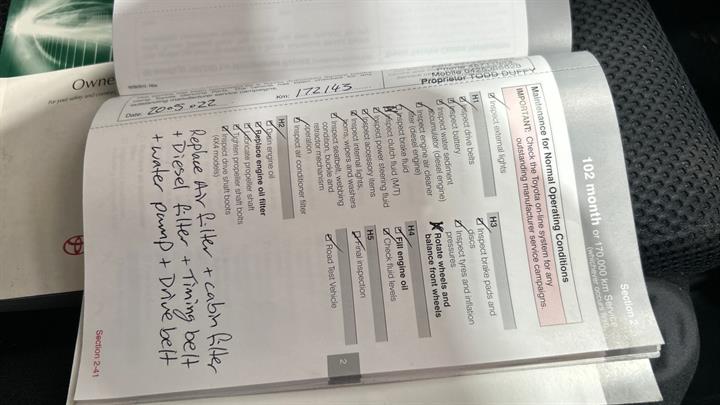 Section 2
102 month or 170,000 km Service
(whichever occurs first)
Maintenance for Normal Operating Conditions
IMPORTANT: Check the Toyota on-line system for any
outstanding manufacturer service campaigns.
Inspect external lights
H1
Inspect drive belts
Inspect battery
Inspect water sediment
accumulator (diesel engine)
Inspect engine air cleaner
filter (diesel engine)
Inspect brake fluid
Inspect clutch fluid (M/T)
Inspect power steering fluid
Inspect accessory items
Inspect internal lights,
horns, wipers and washers
Inspect seatbelt, webbing
condition, buckle and
retractor mechanism
operation
Inspect air conditioner filter
H2
Drain engine oil
Replace engine oil filter
Lubricate propeller shaft
Tighten propeller shaft bolts
Inspect drive shaft boots
(4X4 models)
H3
Inspect brake pads and
discs
Inspect tyres and inflation
pressures
Rotate wheels and
balance front wheels
H4
Fill engine oil
Check fluid levels
H5
Final inspection
Road Test Vehicle
Replace Air filter + cabin filter
+ Diesel filter + Timing belt
+ water pump + Drive belt
2
Section 2-41
Proprietor TODD DUFFY
Km: 172143
Date: 2005.022
Owne